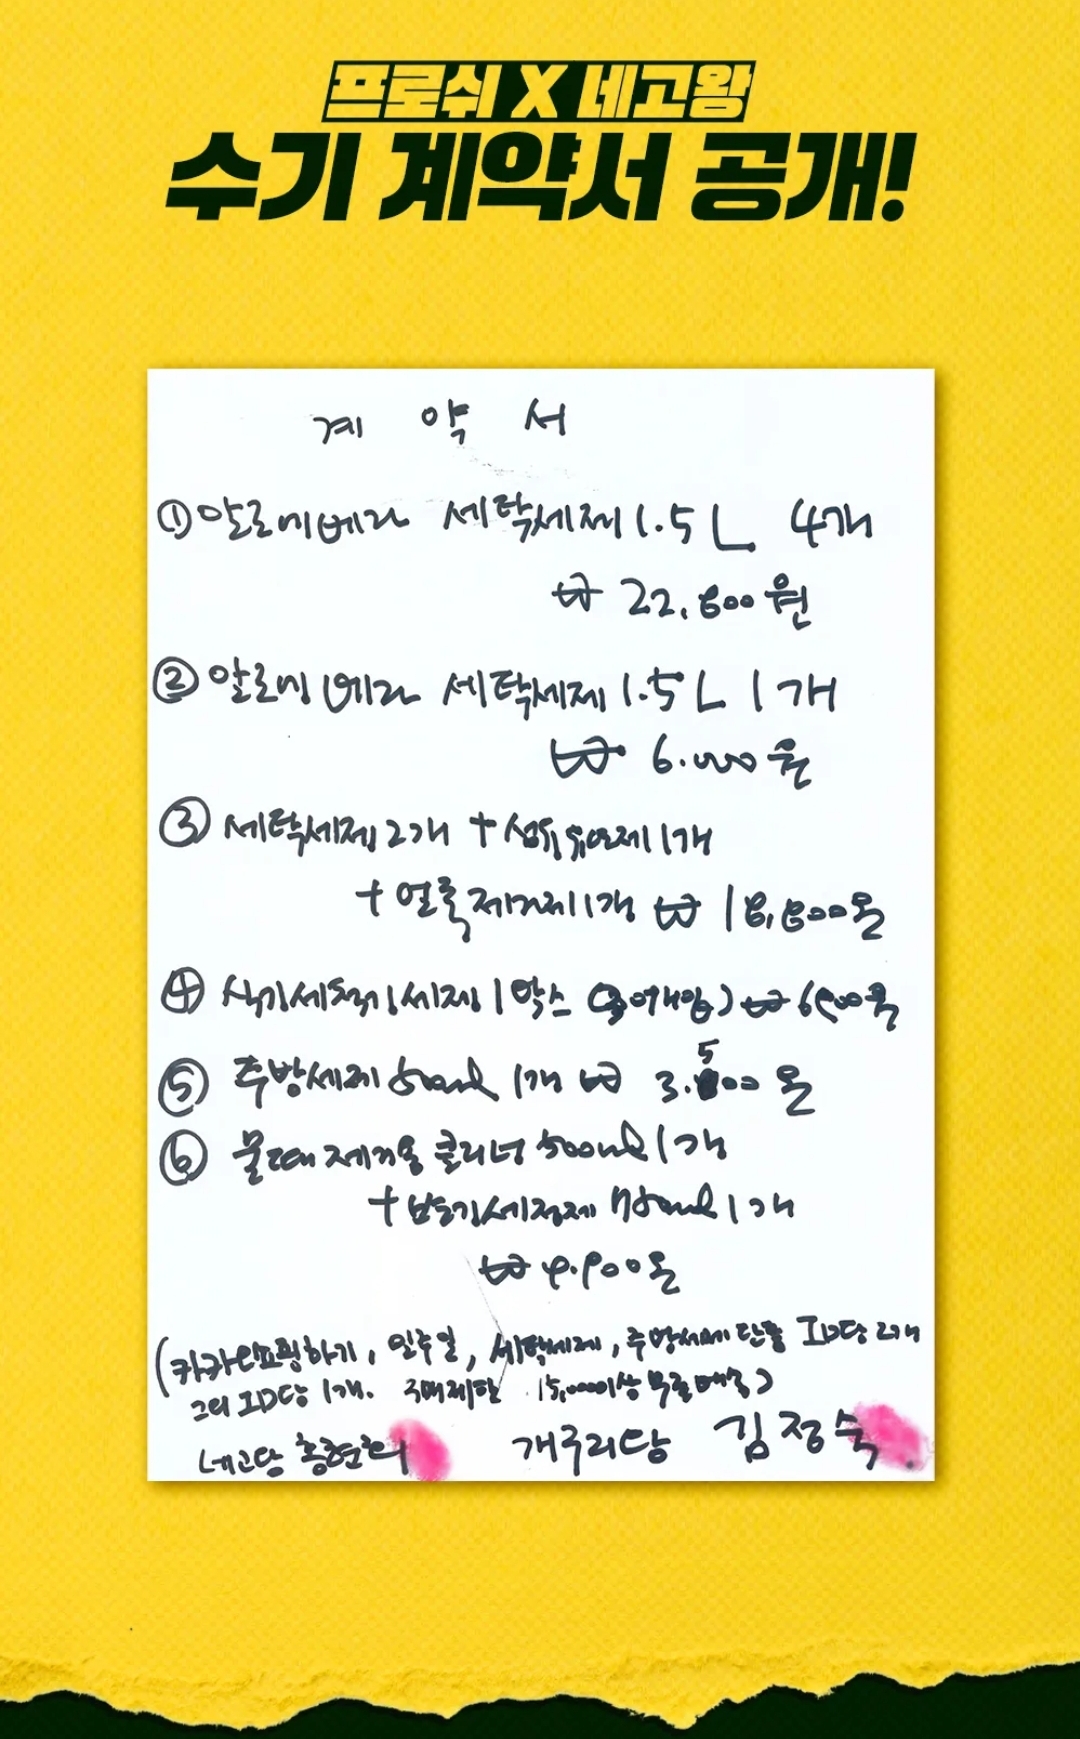 프로쉬 X 네고왕
수기 계약서 공개!
계 약 서
① 알로에베라 세탁세제 1.5L 4개
₩ 22,800원
② 알로에베라 세탁세제 1.5L 1개
₩ 6.000원
③ 세탁세제 2개 + 섬유유연제 1개
+ 얼룩제거제 1개 ₩ 18,800원
④ 식기세척기세제 1박스 ₩ 6900원
⑤ 주방세제 500ml 1개 ₩ 3.500원
⑥ 물때제거용 클리너 500ml 1개
+ 변기세정제 750ml 1개
₩ 9.900원
(카카오쇼핑하기, 일주일, 세탁세제, 주방세제 단품 ID당 2개
그외 ID당 1개. 구매제한 15,000이상 무료배송)
네고왕 홍현희 개구리당 김정숙